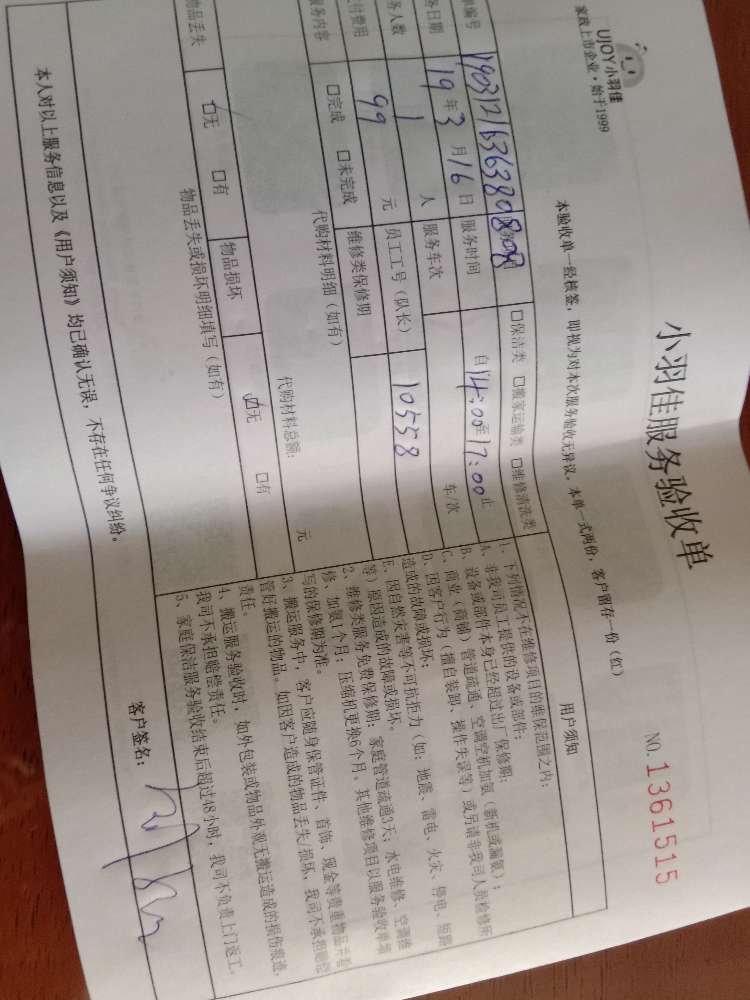 UJOY小羽佳
家政上市企业·始于1999
小羽佳服务验收单
NO. 1361515
本验收单一经核签，即视为对本次服务验收无异议。本单一式两份，客户留存一份（红）
单编号 190312163638080808
□保洁类 □搬家运输类 □维修清洗类
务日期 19年3月16日 服务时间 自14:00至17:00止
务人数 1 人 服务车次 车/次
付费用 99 元 员工工号（队长） 10558
服务内容 □完成 □未完成 维修类保修期
代购材料明细（如有）
代购材料总额： 元
物品丢失 □无 □有 物品损坏 □无 □有
物品丢失或损坏明细填写（如有）
用户须知
1、下列情况不在维修项目的维保范围之内：
A、非我司员工提供的设备或部件；
B、设备或部件本身已经超过出厂保修期；
C、商业（商铺）管道疏通、空调空机加氨（新机或漏氨）；
D、因客户行为（擅自装卸、操作失误等）或另请非我司人员检修所
造成的故障或损坏；
E、因自然灾害等不可抗拒力（如：地震、雷电、火灾、停电、短路
等）原因造成的故障或损坏。
2、维修类服务免费保修期：家庭管道疏通3天；水电维修、空调维
修、加氨1个月；压缩机更换6个月。其他维修项目以服务验收单填
写的保修期为准。
3、搬运服务中，客户应随身保管证件、首饰、现金等贵重物品并看
管好搬运的物品。如因客户造成的物品丢失/损坏，我司不承担赔偿
责任。
4、搬运服务验收时，如外包装或物品外观无搬运造成的损伤痕迹，
我司不承担赔偿责任。
5、家庭保洁服务验收结束后超过48小时，我司不负责上门返工。
本人对以上服务信息以及《用户须知》均已确认无误，不存在任何争议纠纷。
客户签名：